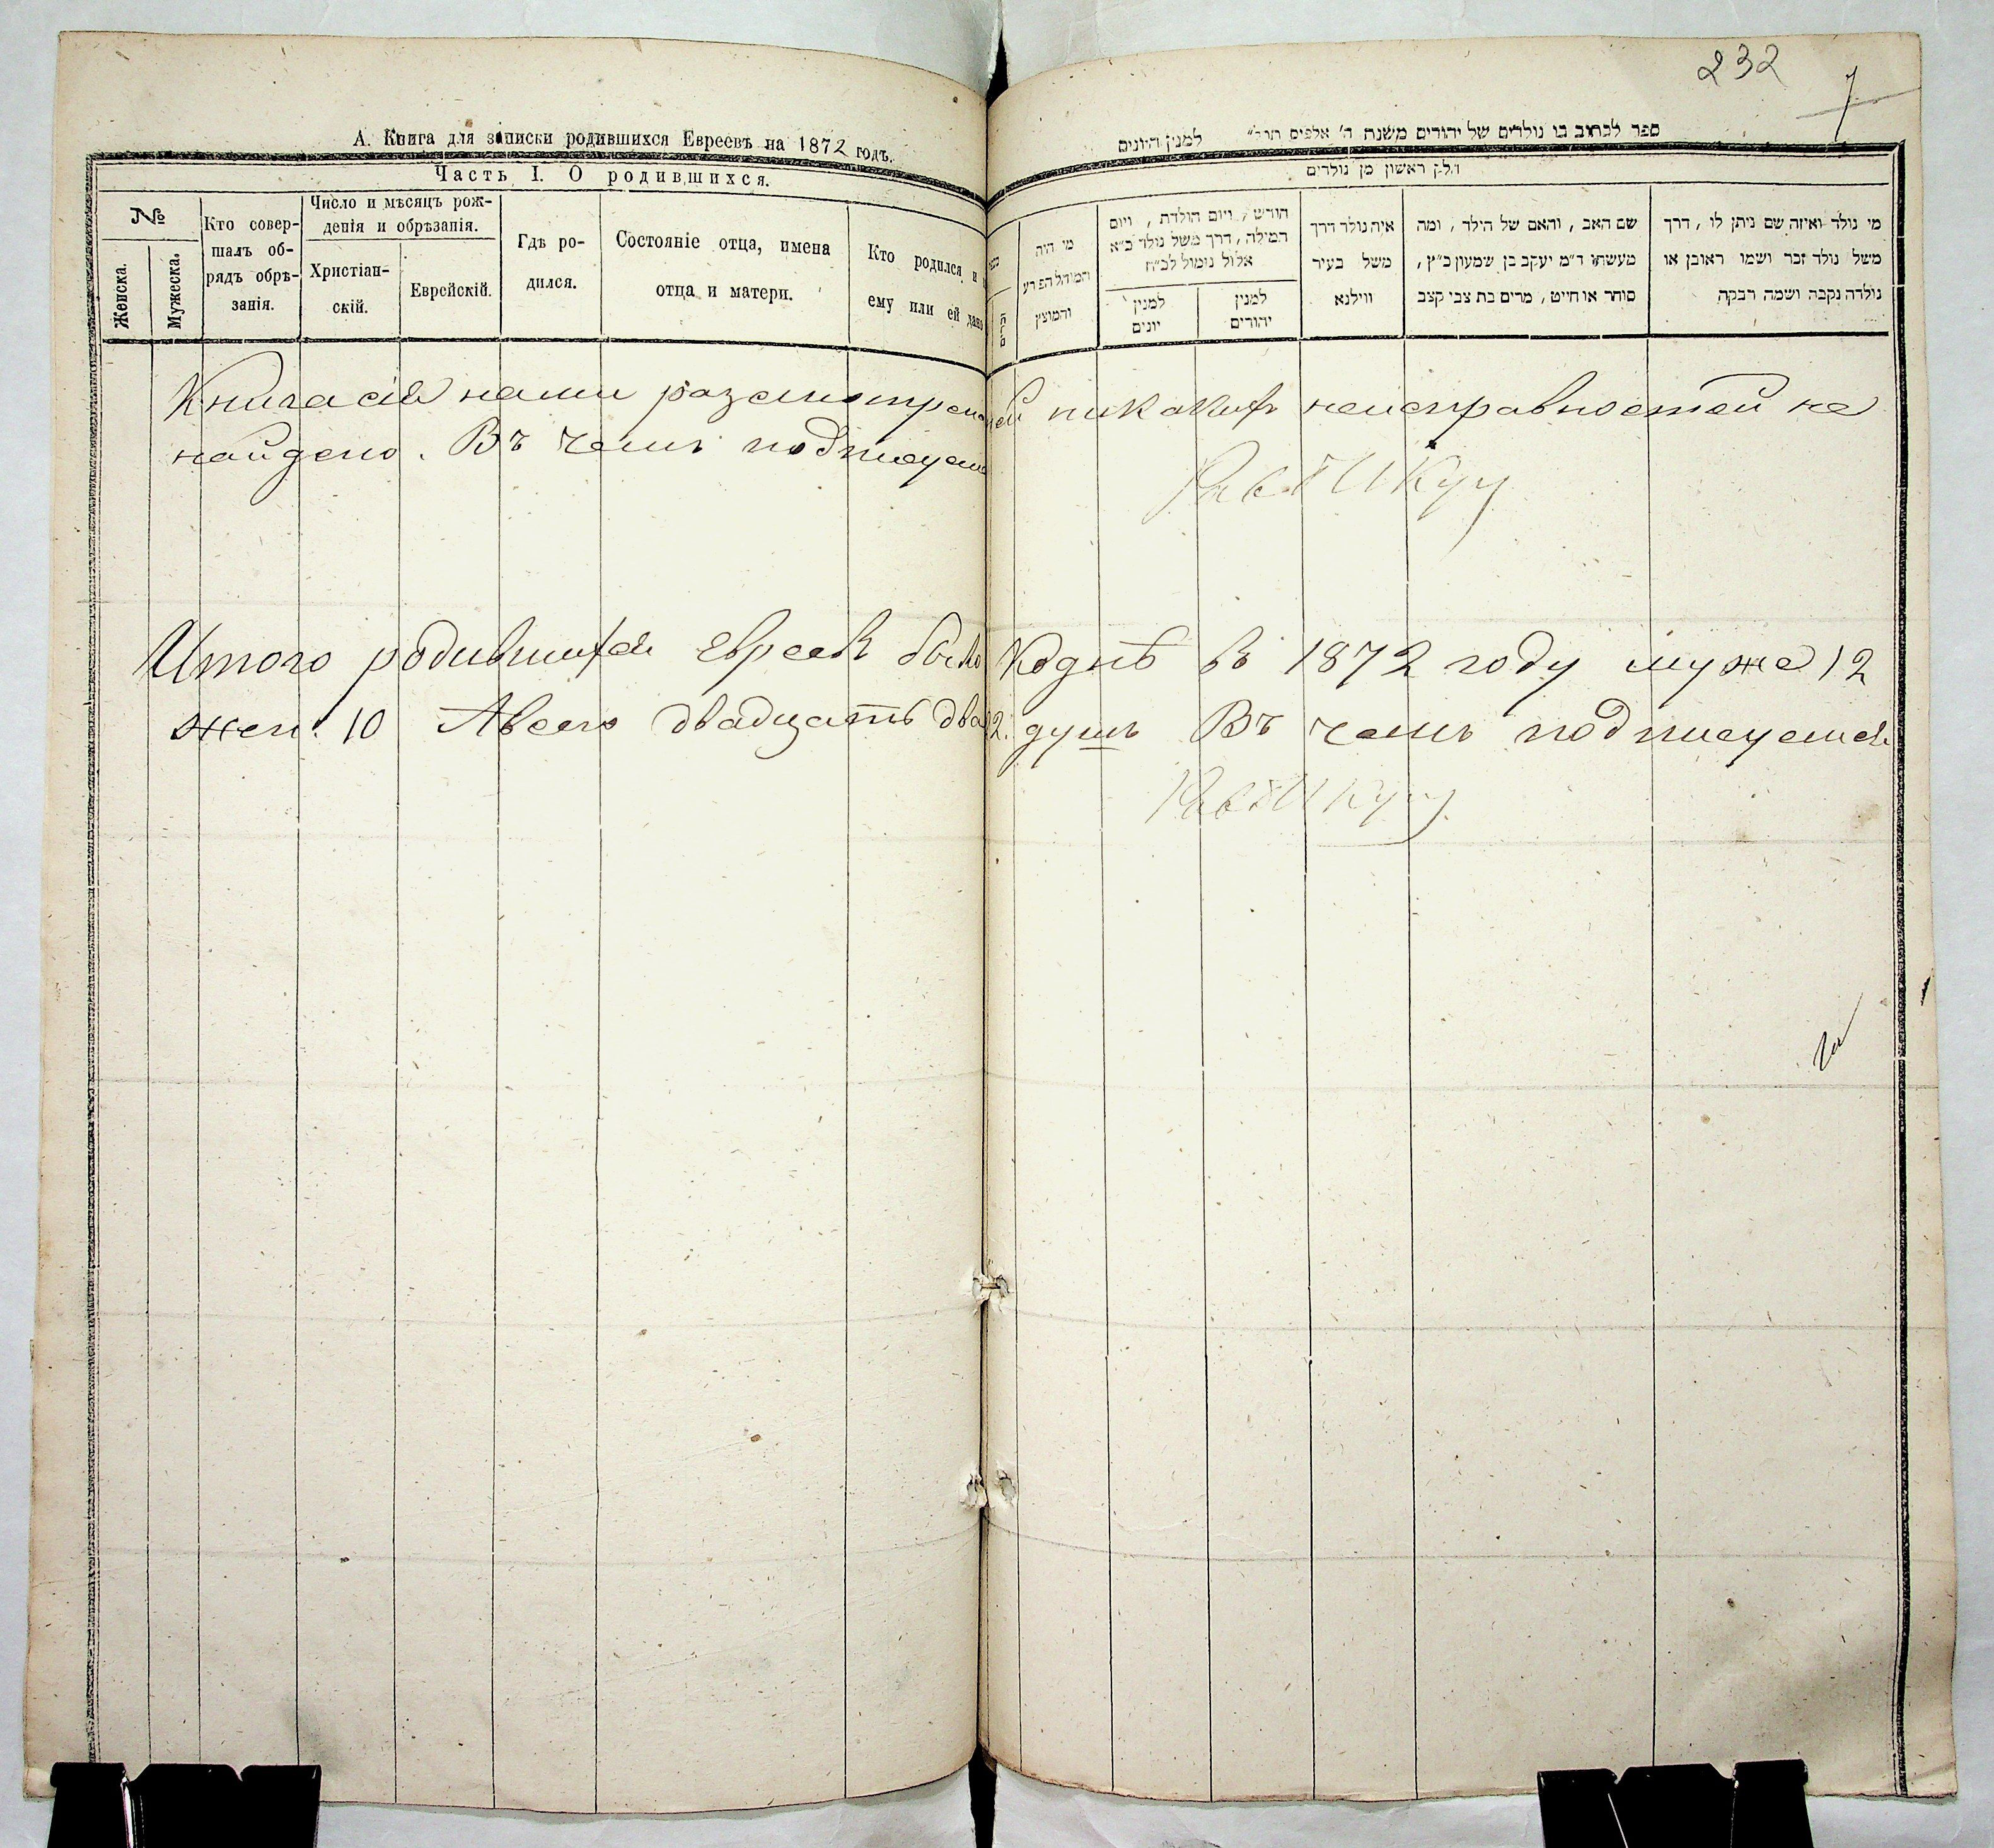 232
7
А. Книга для записки родившихся Евреевъ на 1872 годъ.
Часть I. О родившихся.
№
Женска.
Мужеска.
Кто совер-
шалъ об-
рядъ обрѣ-
занія.
Число и мѣсяцъ рож-
денія и обрѣзанія.
Христіан-
скій.
Еврейскій.
Гдѣ ро-
дился.
Состояніе отца, имена
отца и матери.
Кто родился и
ему или ей дано
ספר לכתוב בו נולדים של יהודים משנת ה' אלפים תר"
למנין היונים
חלק ראשון מן נולדים
מי נולד ואיזה שם ניתן לו, דרך
משל נולד זכר ושמו ראובן או
נולדה נקבה ושמה רבקה
שם האב, והאם של הילד, ומה
מעשתו ד"מ יעקב בן שמעון כ"ץ,
סוחר או חייט, מרים בת צבי קצב
איה נולד דרך
משל בעיר
ווילנא
חודש, ויום הולדת, ויום
המילה, דרך משל נולד כ"א
אלול נימול לכ"ח
למנין
יהודים
למנין
יונים
מי היה
המוהל הפורע
והמוצץ
Книга сія нами разсмотрена
ей никакихъ неисправностей не
найдено. Въ чемъ подписуем
Итого родившихся евреевъ было Коднѣ въ 1872 году муже 12
жен. 10 А всего двадцать два 2. душъ Въ чемъ подписуемся